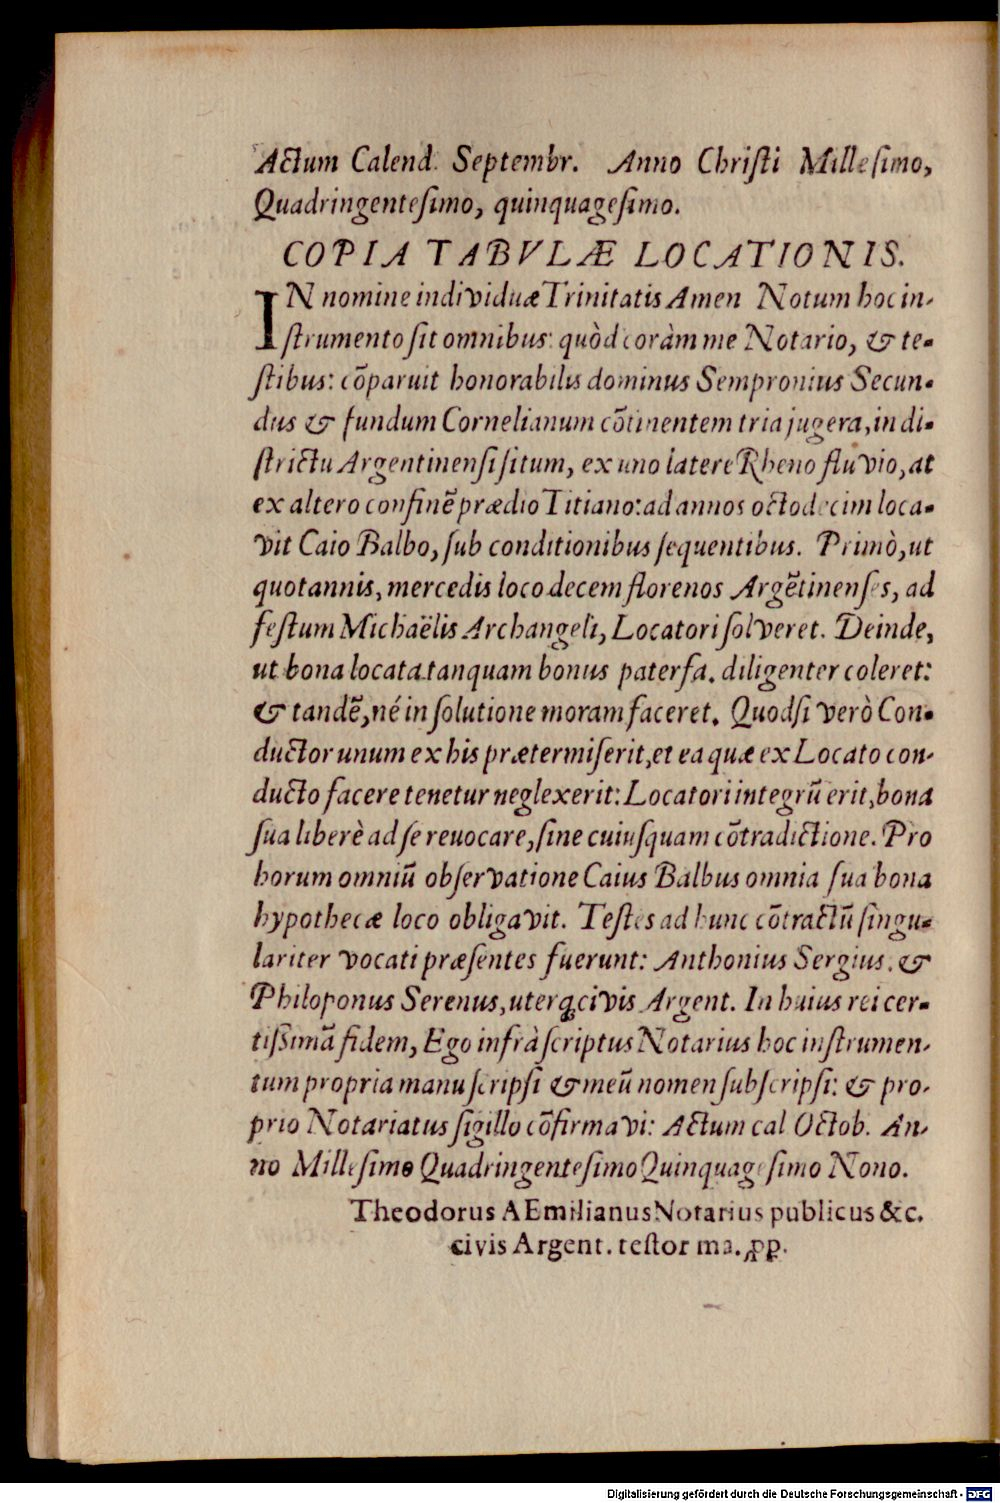 Actum Calend. Septembr. Anno Christi Millesimo,
Quadringentesimo, quinquagesimo.
COPIA TABVLÆ LOCATIONIS.
IN nomine individuæ Trinitatis Amen Notum hoc in-
strumento sit omnibus: quòd coràm me Notario, & te-
stibus: cōparuit honorabilis dominus Sempronius Secun-
dus & fundum Cornelianum cōtinentem tria jugera, in di-
strictu Argentinensi situm, ex uno latere Rheno fluvio, at
ex altero confinē prædio Titiano: ad annos octodecim loca-
vit Caio Balbo, sub conditionibus sequentibus. Primò, ut
quotannis, mercedis loco decem florenos Argētinenses, ad
festum Michaëlis Archangeli, Locatori solveret. Deinde,
ut bona locata tanquam bonus paterfa. diligenter coleret:
& tandē, né in solutione moram faceret. Quodsi verò Con-
ductor unum ex his prætermiserit, et ea quæ ex Locato con-
ducto facere tenetur neglexerit: Locatori integrū erit, bona
sua liberè ad se reuocare, sine cuiusquam cōtradictione. Pro
horum omniū observatione Caius Balbus omnia sua bona
hypothecæ loco obligavit. Testes ad hunc cōtractū singu-
lariter vocati præsentes fuerunt: Anthonius Sergius. &
Philoponus Serenus, uterq; civis Argent. In huius rei cer-
tissimā fidem, Ego infrà scriptus Notarius hoc instrumen-
tum propria manu scripsi & meū nomen subscripsi: & pro-
prio Notariatus sigillo cōfirmavi: Actum cal Octob. An-
no Millesimo Quadringentesimo Quinquagesimo Nono.
Theodorus AEmilianus Notarius publicus &c.
civis Argent. testor ma. ꝓp.
Digitalisierung gefördert durch die Deutsche Forschungsgemeinschaft - DFG